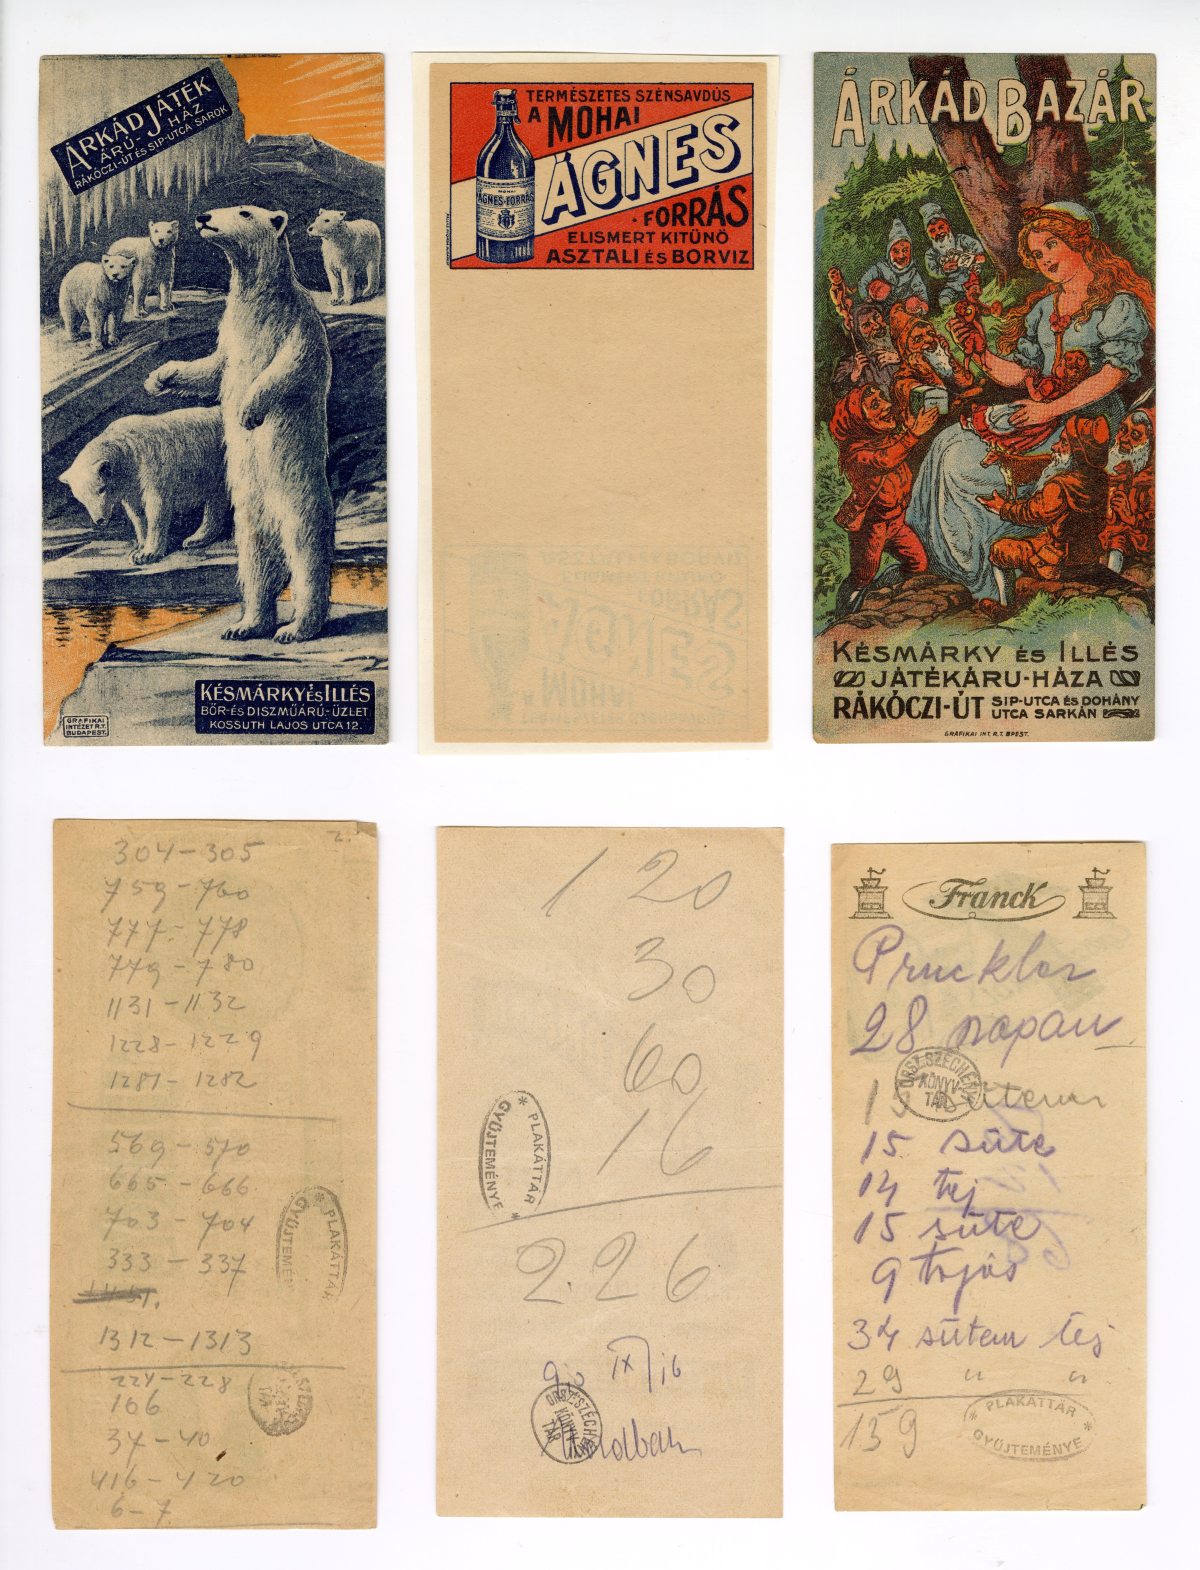 ÁRKÁD JÁTÉK
ÁRU-HÁZ
RÁKÓCZI-ÚT ÉS SIP-UTCA SAROK
KÉSMÁRKY ÉS ILLÉS
BŐR- ÉS DISZMŰÁRU-ÜZLET
KOSSUTH LAJOS UTCA 12.
GRAFIKAI
INTÉZET R.T.
BUDAPEST.
TERMÉSZETES SZÉNSAVDÚS
A MOHAI
ÁGNES
FORRÁS
ELISMERT KITÜNŐ
ASZTALI ÉS BORVIZ
MOHAI
ÁGNES-FORRÁS
ÁRKÁD BAZÁR
KÉSMÁRKY ÉS ILLÉS
JÁTÉKÁRU-HÁZA
RÁKÓCZI-ÚT SIP-UTCA ÉS DOHÁNY
UTCA SARKÁN
GRAFIKAI INT. R.T. BPEST.
2.
304-305
759-760
777-778
779-780
1131-1132
1228-1229
1281-1282
569-570
665-666
703-704
333-337
1312-1313
224-228
106
37-40
416-420
6-7
PLAKÁTTÁR
GYŰJTEMÉNYE
1 20
30
60
16
2.26
IX/16
PLAKÁTTÁR
GYŰJTEMÉNYE
ORSZ. SZÉCHÉNYI
KÖNYV-
TÁR
Franck
28 napan
15 sütem
15 süte
14 tej
15 süte
9 tojás
34 sütem tej
29 " "
159
ORSZ. SZÉCHÉNYI
KÖNYV-
TÁR
PLAKÁTTÁR
GYŰJTEMÉNYE